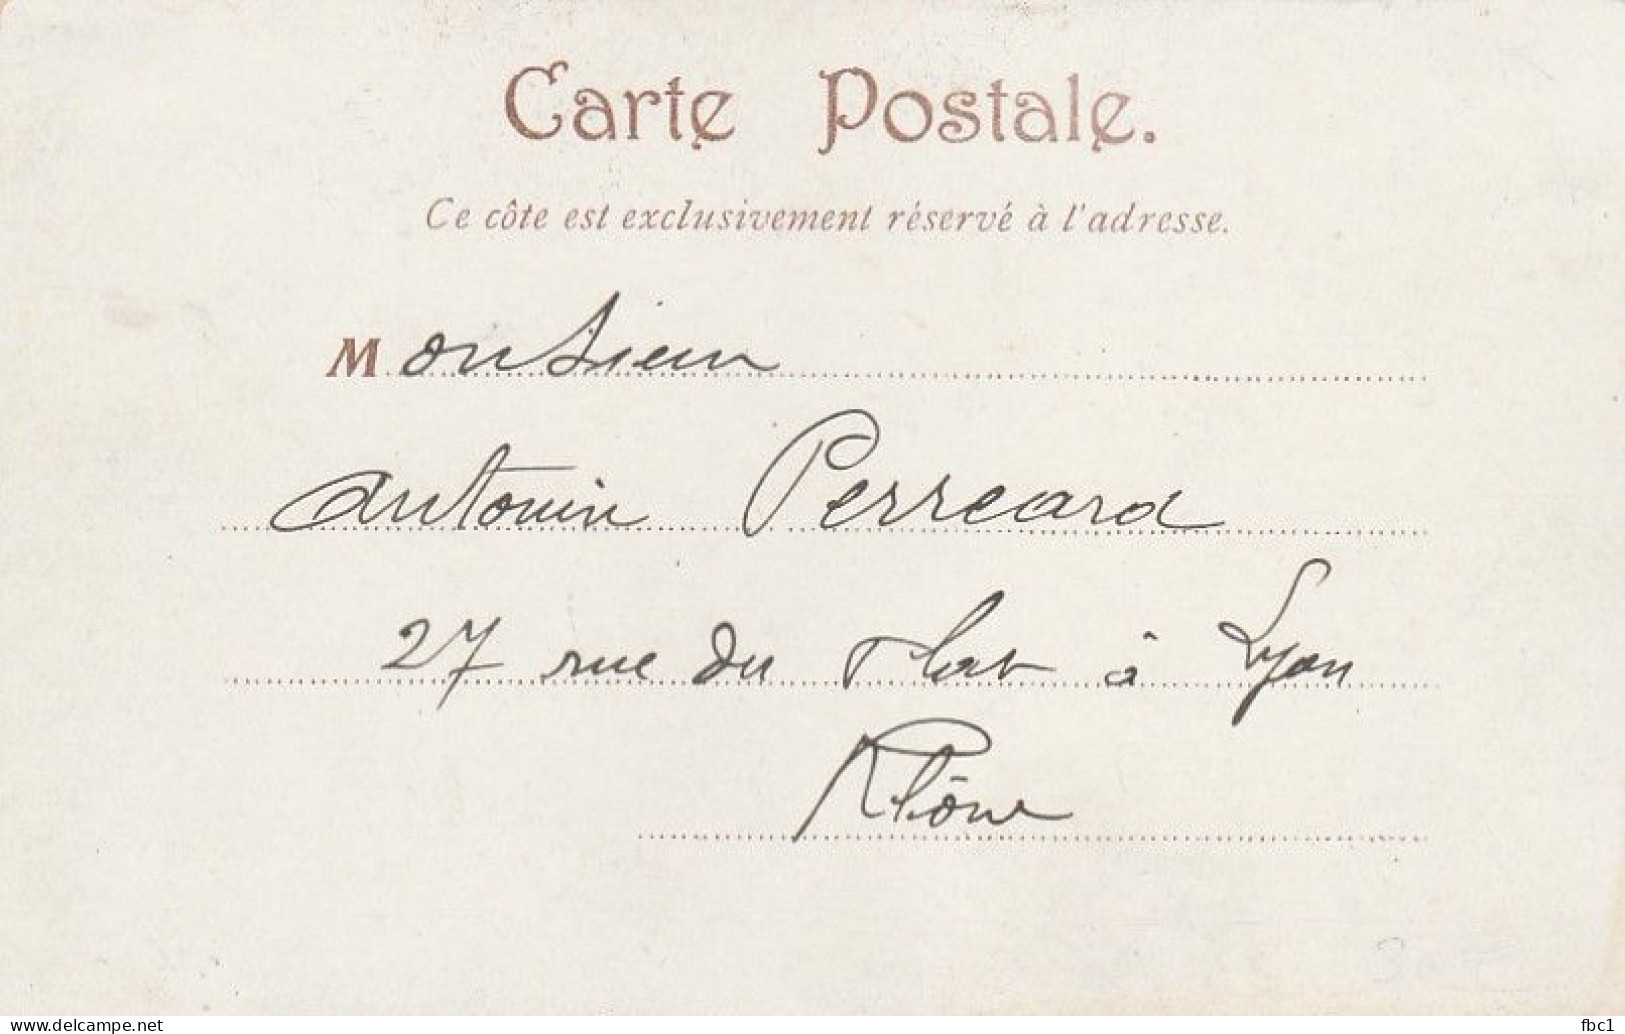 Carte Postale.
Ce côte est exclusivement réservé à l'adresse.
Monsieur
Antonin Perreard
27 rue du Plat à Lyon
Rhône
www.delcampe.net
fbc1